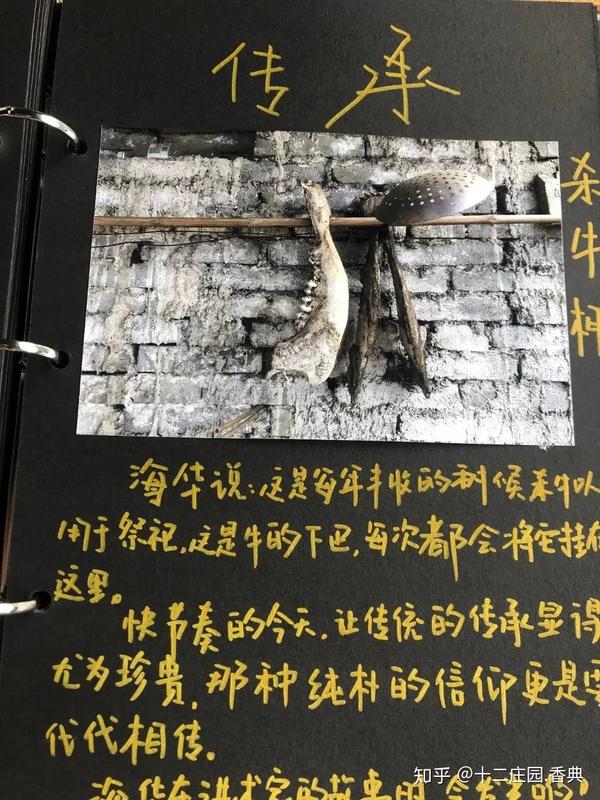 传承
杀牛
海华说:这是每年丰收的利候杀牛以
用于祭祀,这是牛的下巴,每次都会将它挂在
这里。
快节奏的今天,让传统的传承显得
尤为珍贵,那种纯朴的信仰更是要
代代相传。
海华在讲述它的故事时,会
知乎 @十二庄园.香典